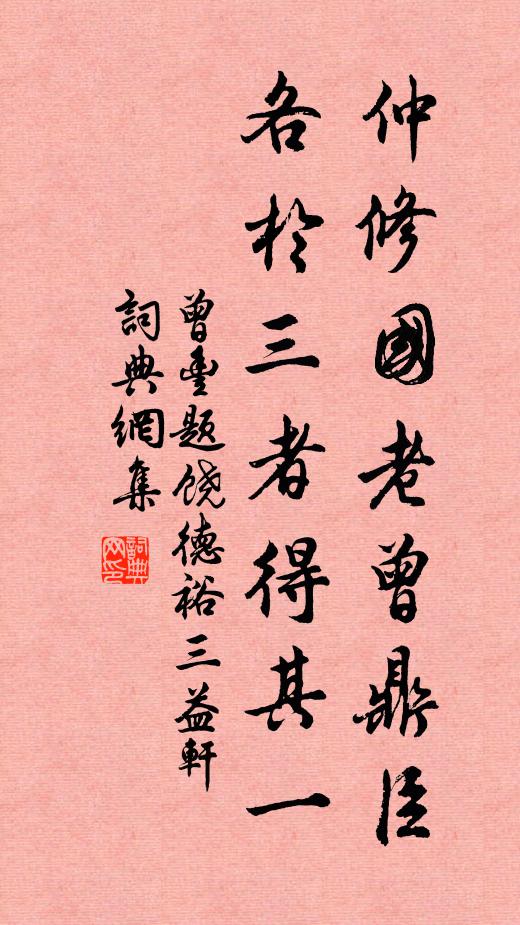 仲修國老曾鼎臣
各於三者得其一
曾豐題饒德裕三益軒
詞典網集
詞典网印